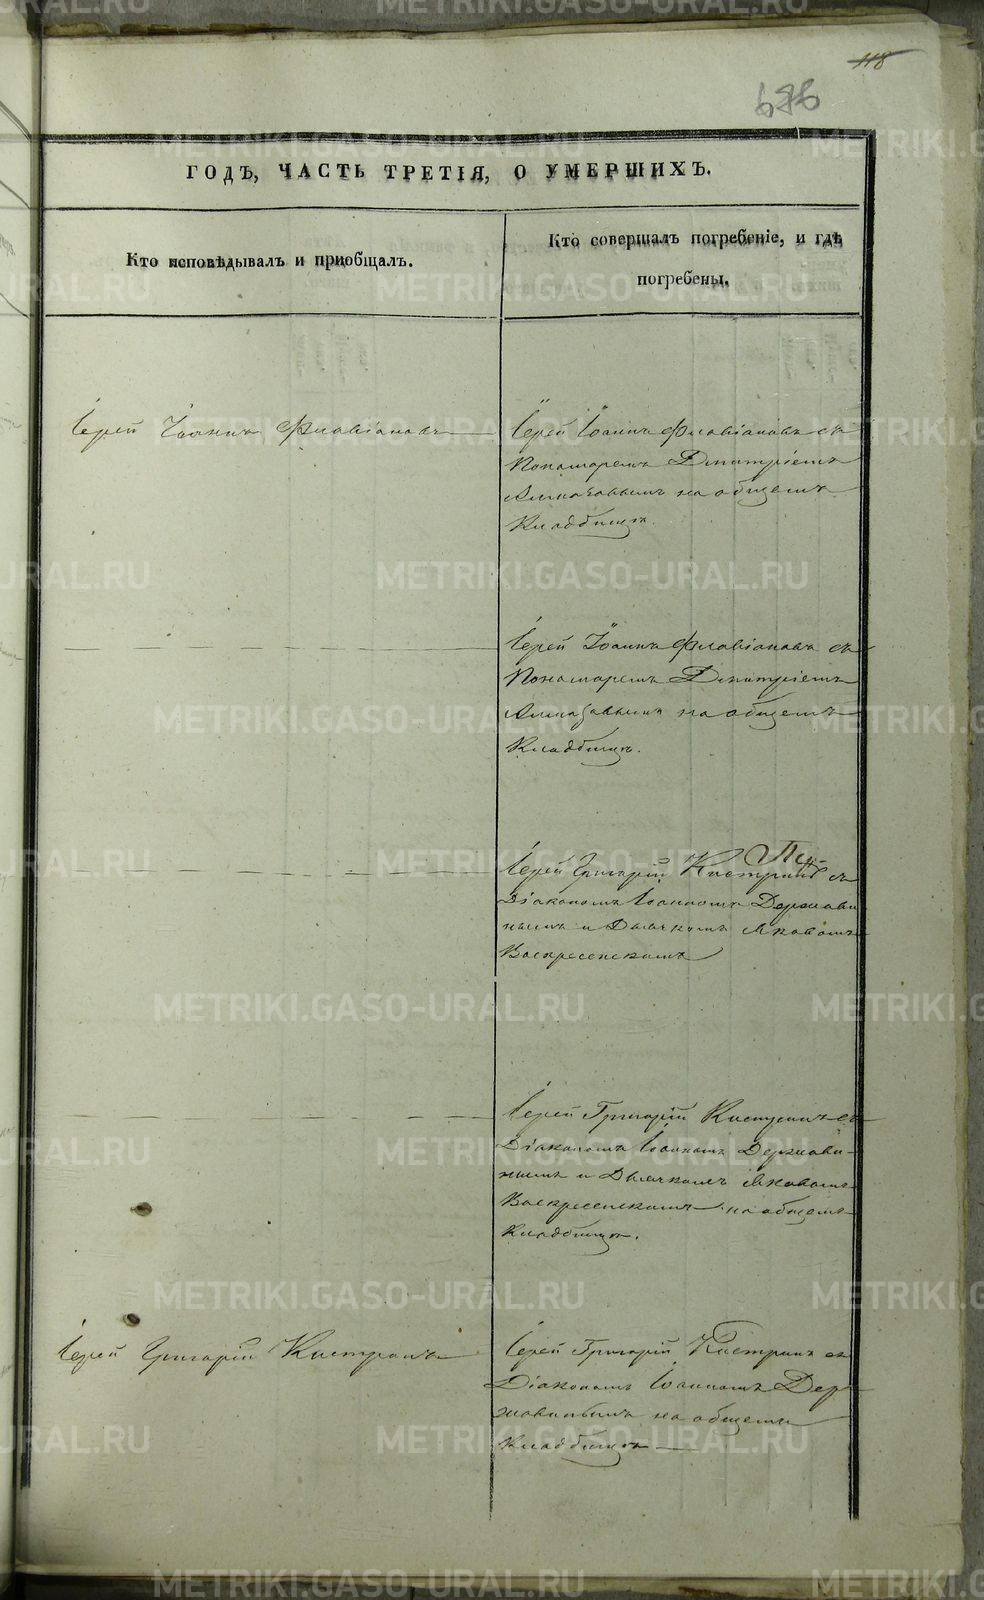 118
ГОДЪ, ЧАСТЬ ТРЕТІЯ, О УМЕРШИХЪ.
Кто исповѣдывалъ и пріобщалъ.
Кто совершалъ погребеніе, и гдѣ
погребены.
Іерей Іоаннъ Флавіановъ
Іерей Іоаннъ Флавіановъ съ
Пономаремъ Дмитріемъ
Алмазовымъ на общемъ
Кладбищѣ.
Іерей Іоаннъ Флавіановъ съ
Пономаремъ Дмитріемъ
Алмазовымъ на общемъ
Кладбищѣ.
Іерей Григорій съ
Діакономъ Іоанномъ Держави
нымъ и Дьячкомъ Яковомъ
Воскресенскимъ
Іерей Григорій съ
Діакономъ Іоанномъ Держави-
нымъ и Дьячкомъ Яковомъ
Воскресенскимъ на общемъ
Кладбищѣ.
Іерей Григорій
Іерей Григорій съ
Діакономъ Іоанномъ Дер
жавинымъ на общемъ
Кладбищѣ
METRIKI.GASO-URAL.RU